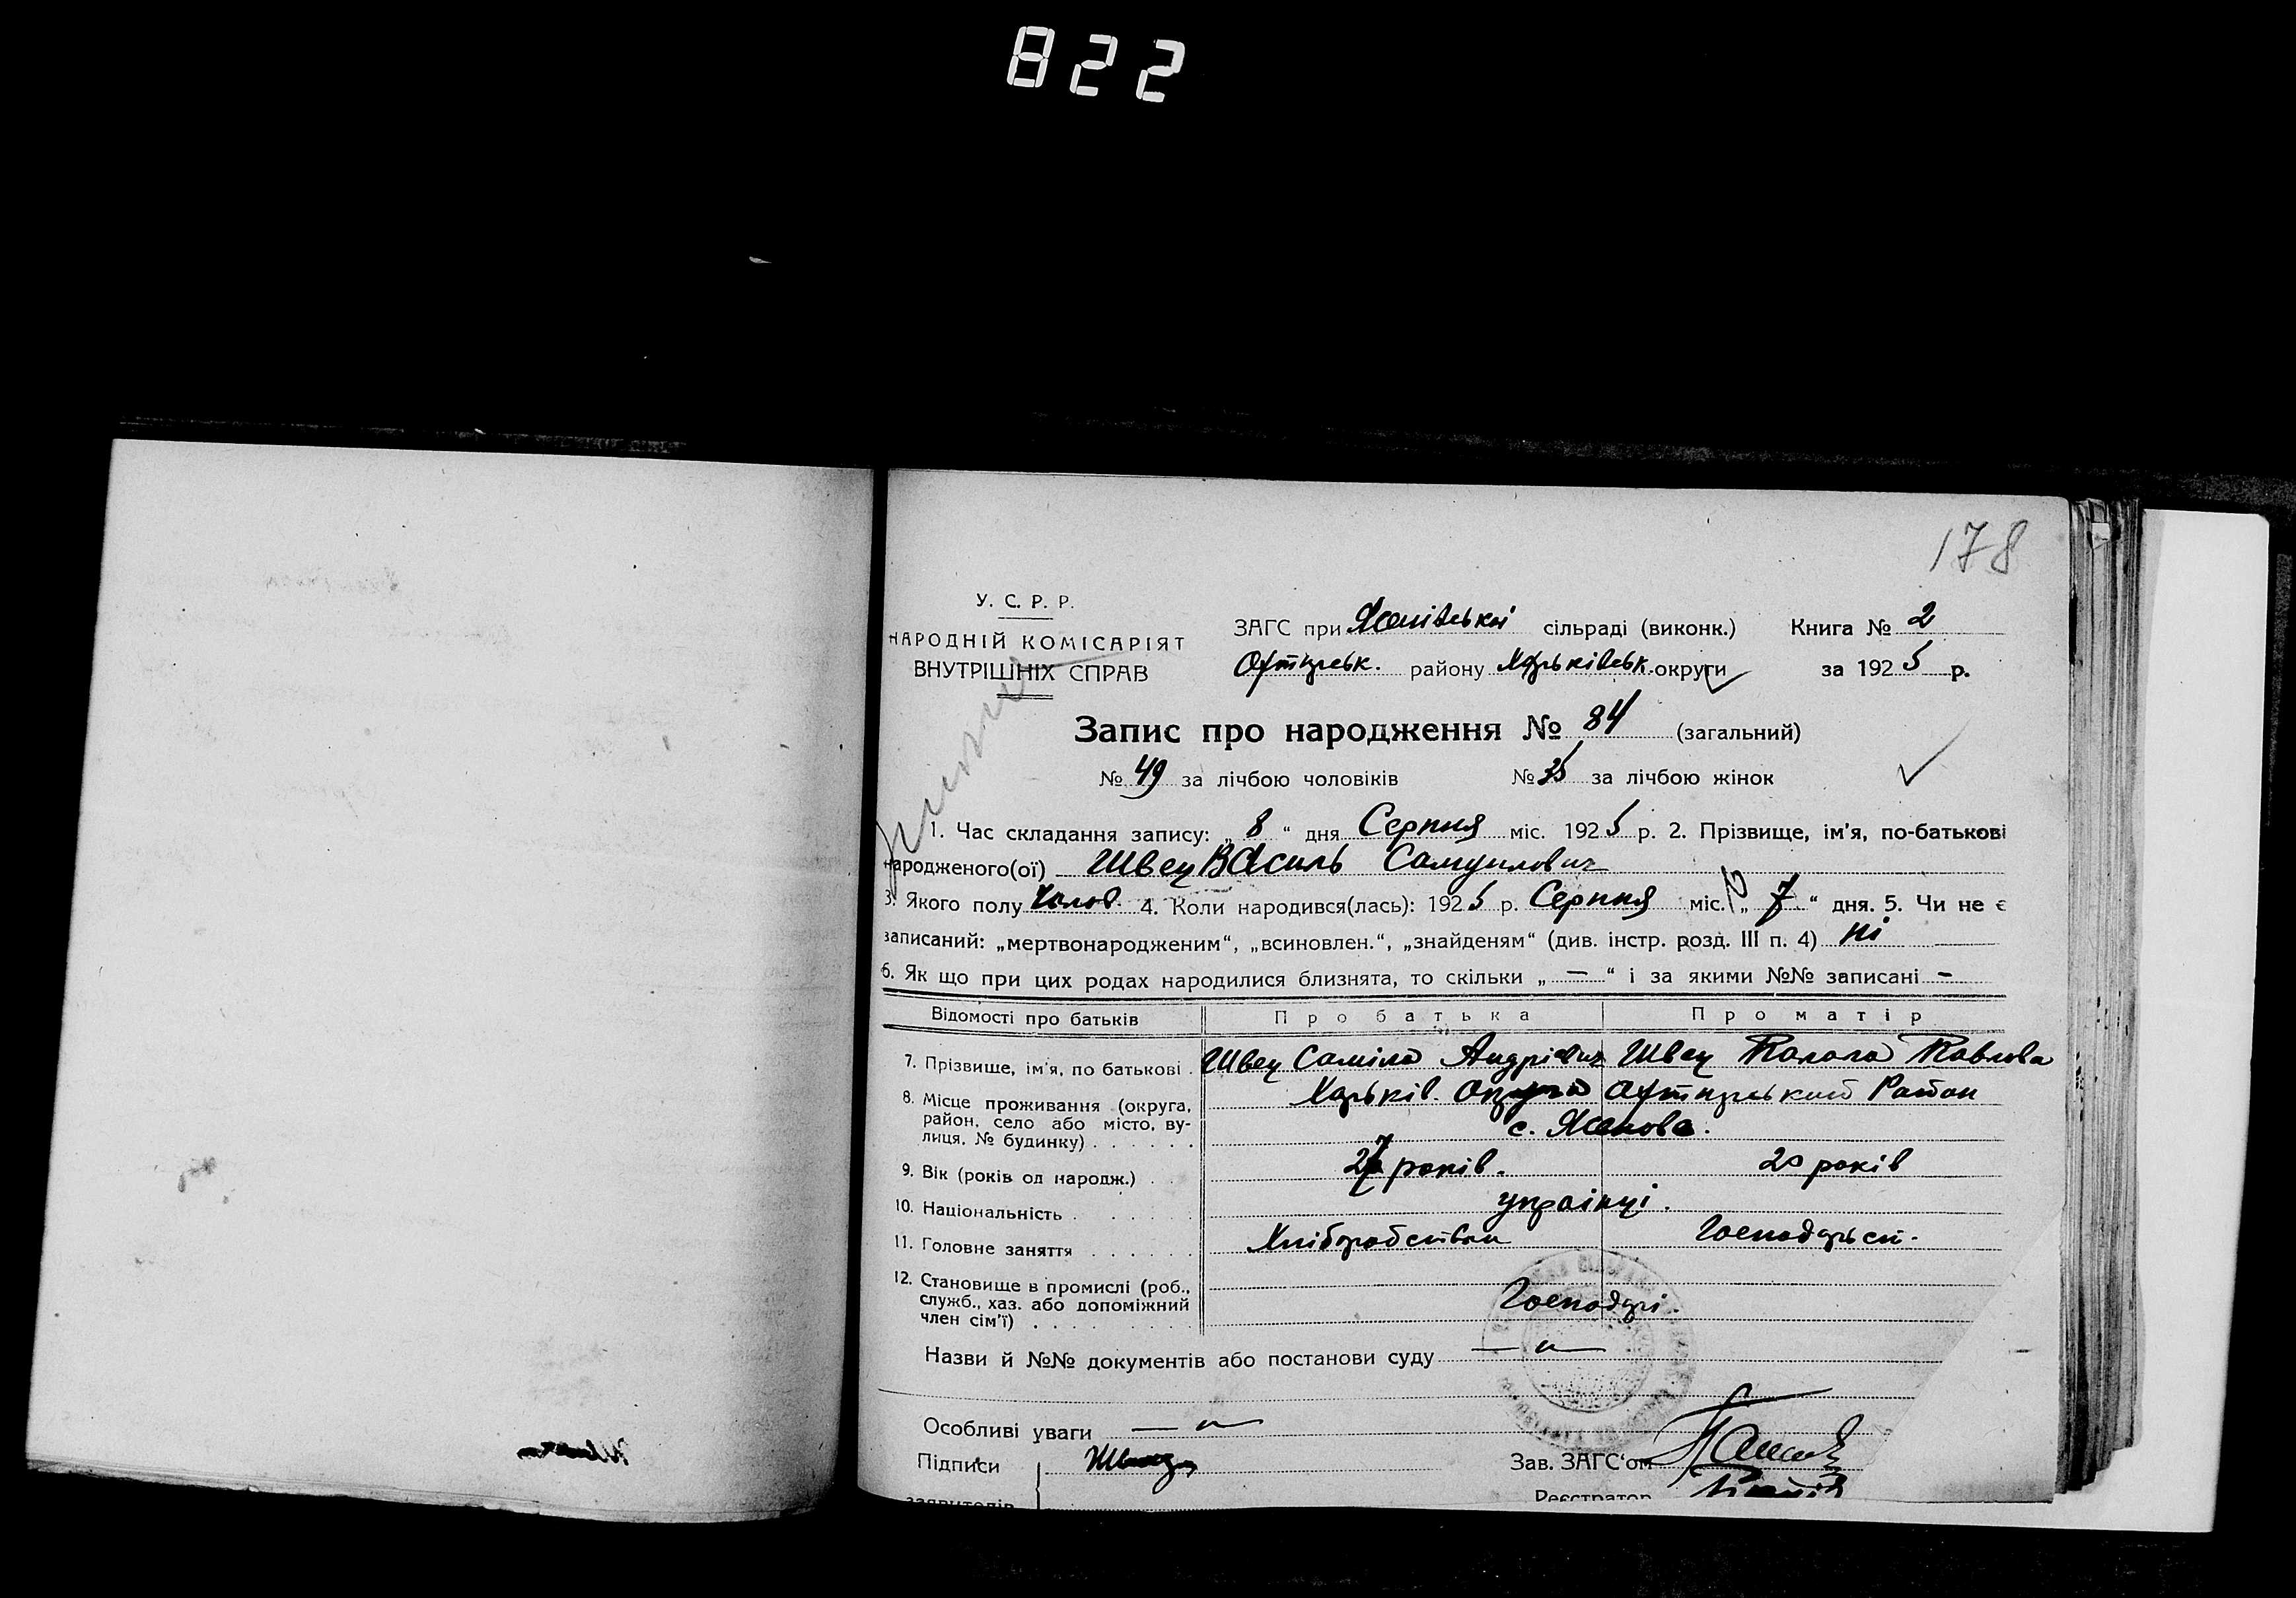 822
178
У. С. Р. Р.
НАРОДНІЙ КОМІСАРІЯТ
ВНУТРІШНІХ СПРАВ
ЗАГС при сільраді (виконк.) Книга № 2
Охтирськ. району Харьківськ. округи за 1925 р.
Запис про народження № 84 (загальний)
№ 49 за лічбою чоловіків № 35 за лічбою жінок
1. Час складання запису: „ 8 “ дня Серпня міс. 1925 р. 2. Прізвище, ім'я, по-батькові
народженого(ої) Швец Василь Самуилович
3. Якого полу Чолов. 4. Коли народився(лась): 1925 р. Серпня міс. „ 7 “ дня. 5. Чи не є
записаний: „мертвонародженим“, „всиновлен.“, „знайденям“ (див. інстр. розд. III п. 4) ні
6. Як що при цих родах народилися близнята, то скільки „ — “ і за якими №№ записані —
Відомості про батьків Про батька Про матір
7. Прізвище, ім'я, по батькові Швец Саміло Андрієвич Швец Павлова
8. Місце проживання (округа, Харьків. Округа Охтирський Район
район, село або місто, ву-
лиця, № будинку) с. Ясенове.
9. Вік (років од народж.) 27 років. 20 років
10. Національність українці.
11. Головне заняття Хліборобством Господарст.
12. Становище в промислі (роб.,
служб., хаз. або допоміжний Господарі.
член сім'ї)
Назви й №№ документів або постанови суду — „ —
Особливі уваги — „ —
Підписи Зав. ЗАГС'ом
заявителів Реєстратор